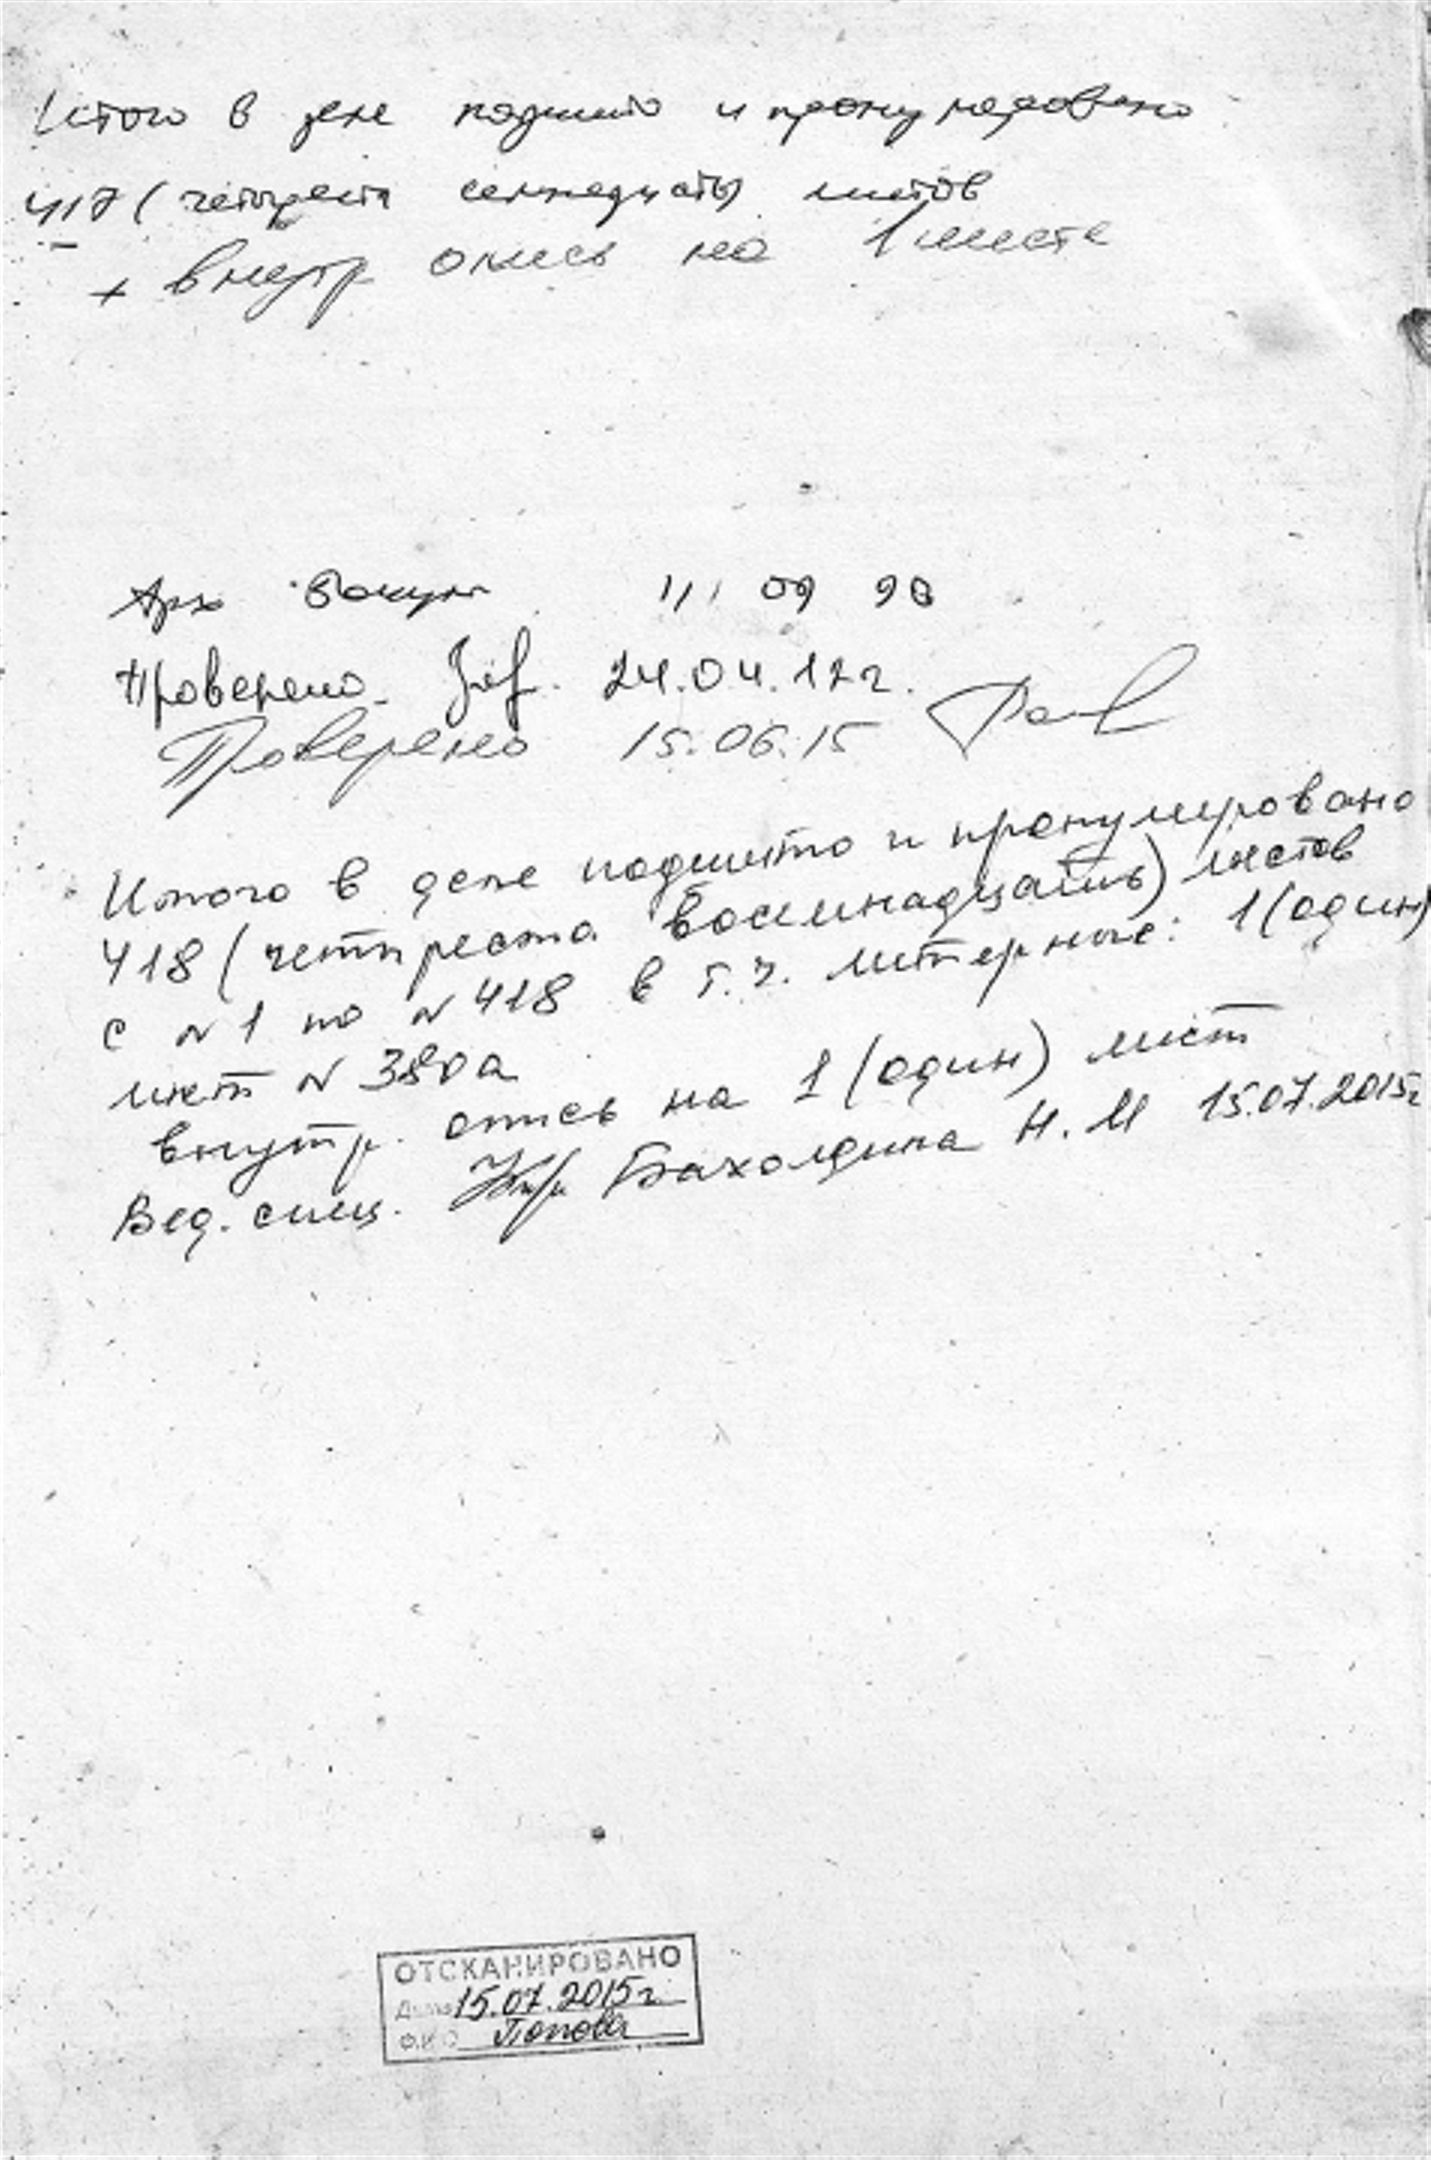 Итого в деле подшито и пронумеровано
417 (четыреста семнадцать) листов
+ внутр опись на 1 листе
Арх 09 90
Проверено 24.04.12г.
Проверено 15.06.15
Итого в деле подшито и пронумеровано
418 (четыреста восемнадцать) листов
с N 1 по N 418 в т.ч. литерные: 1 (один)
лист N 380а
внутр. опись на 1 (один) лист
Вед. спец. Бахолдина Н.М 15.07.2015г
ОТСКАНИРОВАНО
Дата 15.07.2015г.
Ф.И.О. Попова